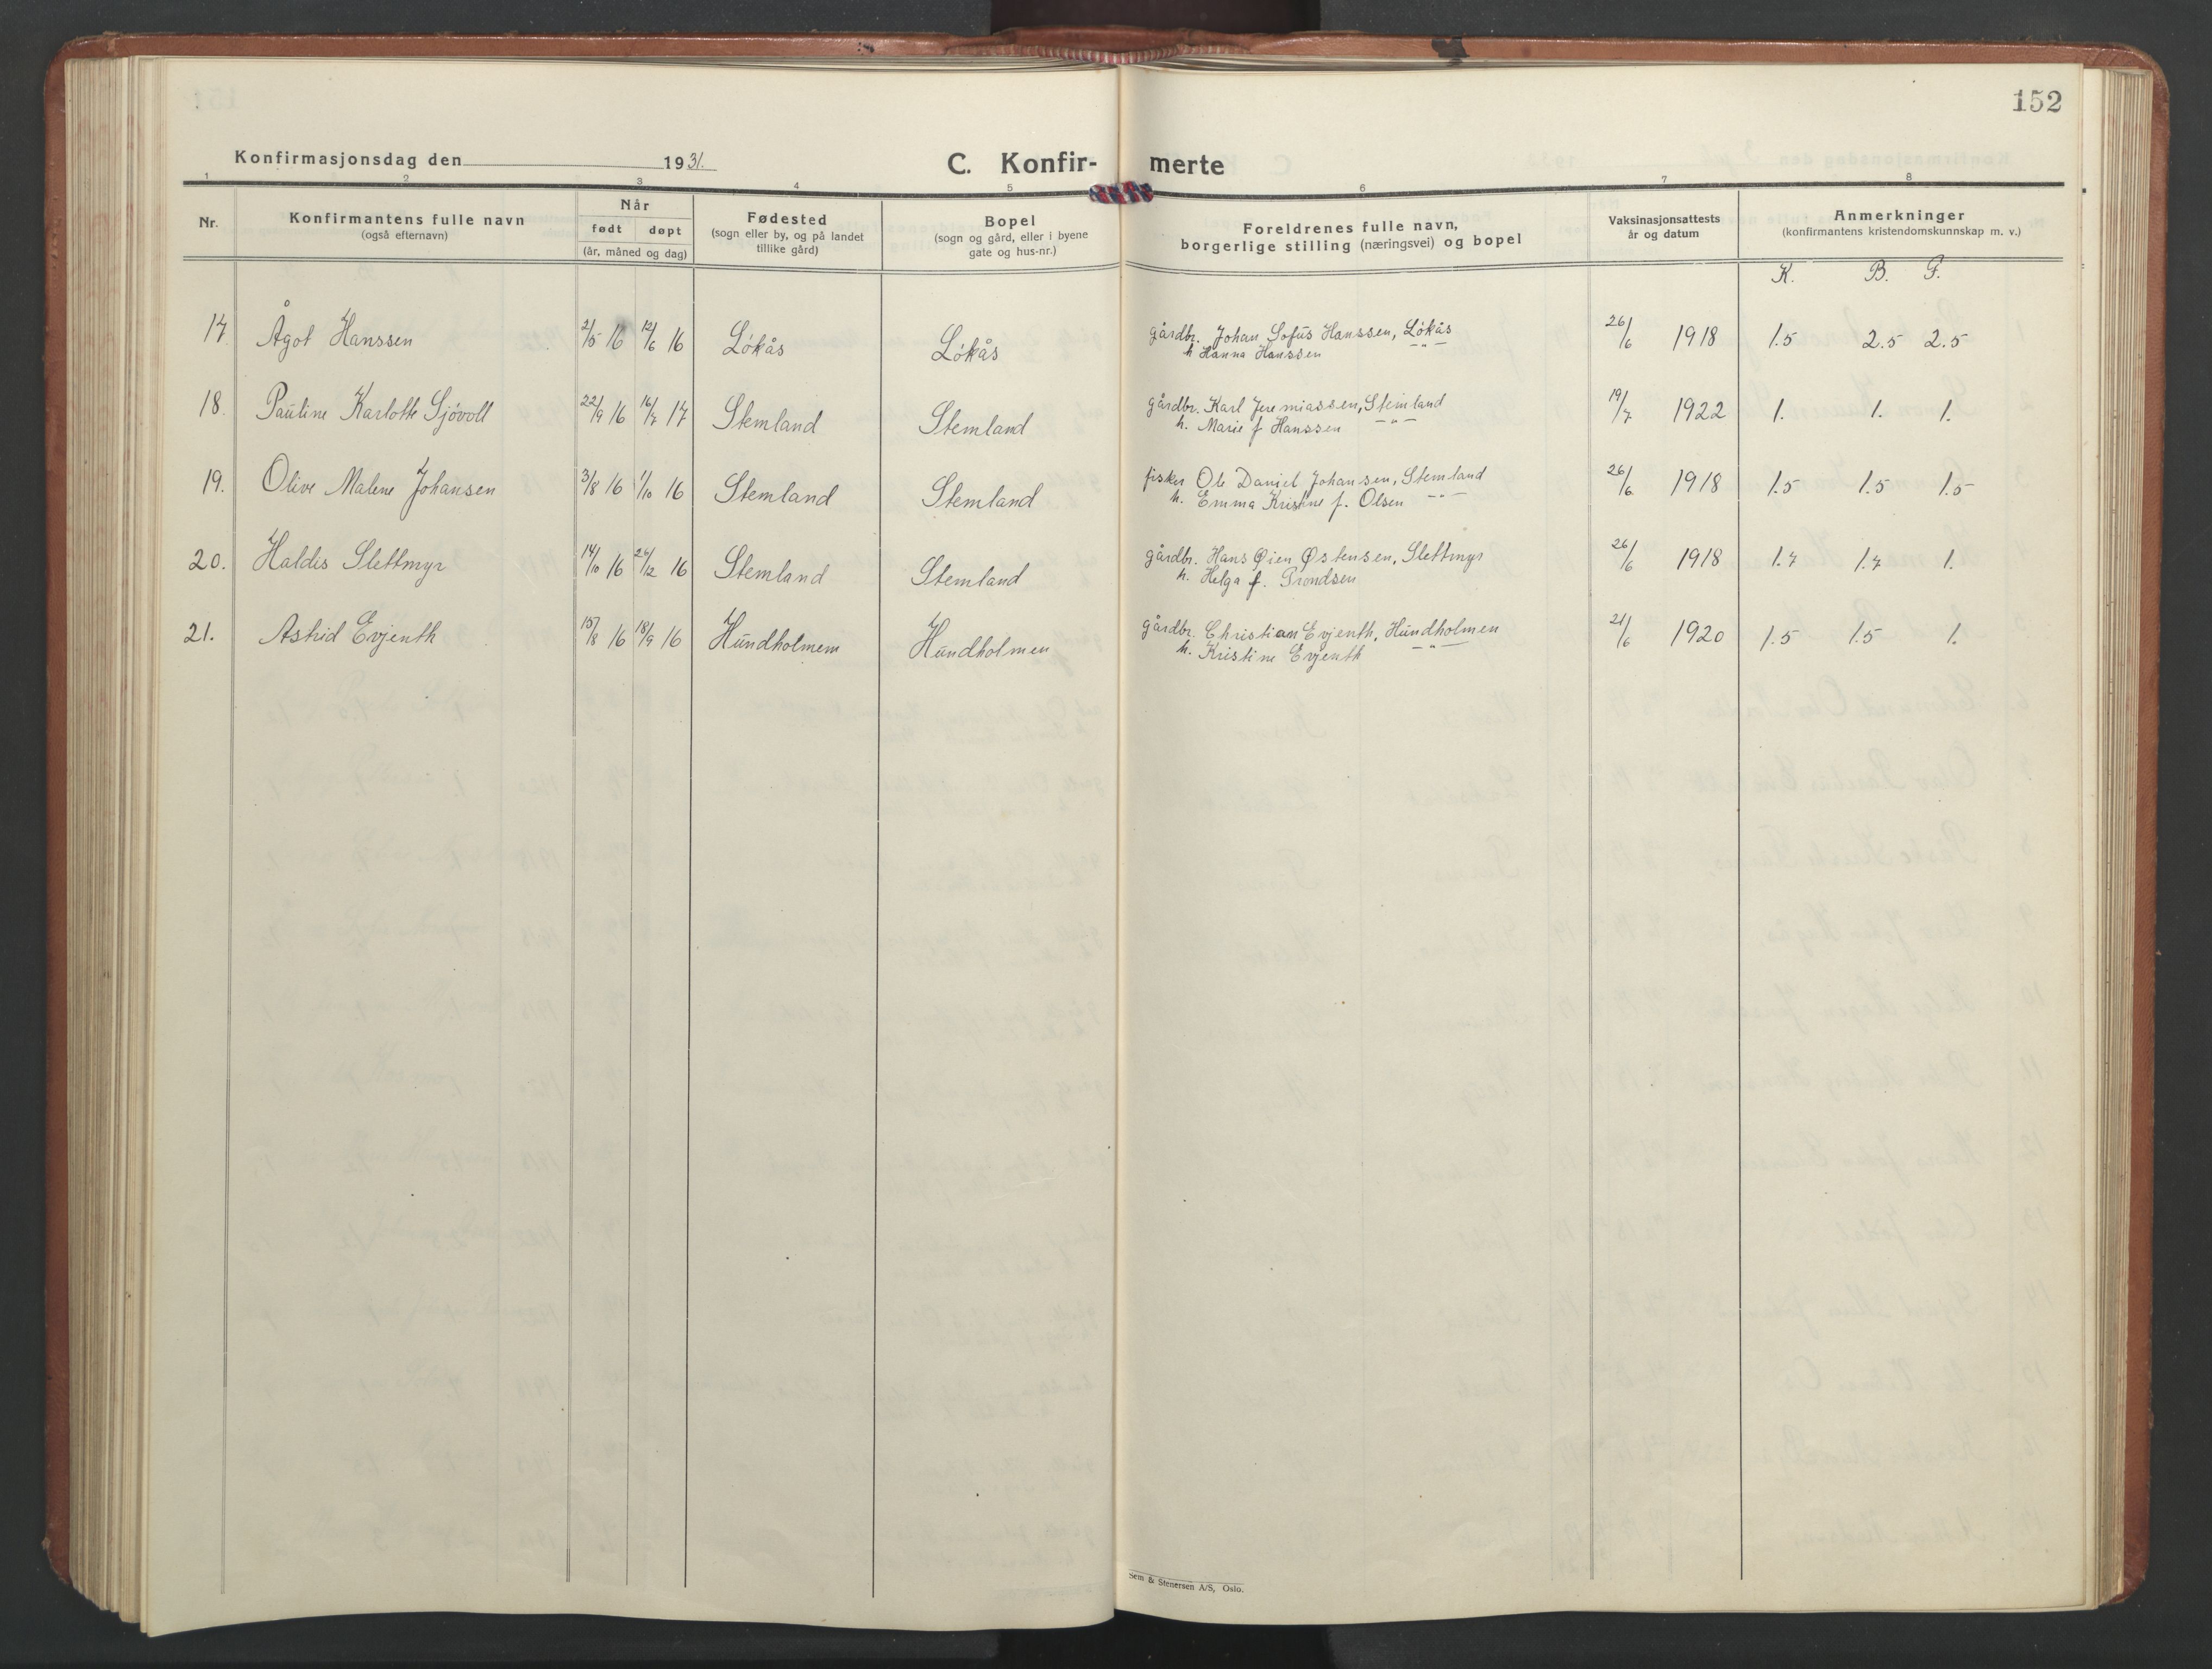 152
Konfirmasjonsdag den 1931. C. Konfir- merte
1 2 3 4 5 6 7 8
Nr. Konfirmantens fulle navn (også efternavn) Når født døpt (år, måned og dag) Fødested (sogn eller by, og på landet tillike gård) Bopel (sogn og gård, eller i byene gate og hus-nr.) Foreldrenes fulle navn, borgerlige stilling (næringsvei) og bopel Vaksinasjonsattests år og datum Anmerkninger (konfirmantens kristendomskunnskap m. v.)
K. B. F.
17 Ågot Hanssen 2/5 16 12/6 16 Lökås Lökås gårdbr. Johan Sofus Hanssen, Lökås 26/6 1918 1.5 2.5 2.5
h Hanna Hanssen -"-
18. Pauline Karlotte Sjövoll 22/9 16 16/7 17 Stemland Stemland gårdbr. Karl Jeremiassen, Stemland 19/7 1922 1. 1. 1.
h. Marie f Hanssen -"-
19. Olive Malene Johansen 3/8 16 1/10 16 Stemland Stemland fisker Ole Daniel Johansen, Stemland 26/6 1918 1.5 1.5 1.5
h. Emma Kristine f. Olsen -"-
20. Haldis Slettmyr 14/10 16 26/12 16 Stemland Stemland gårdbr. Hans Øien Østensen, Slettmyr 26/6 1918 1.7 1.7 1.
h. Helga f. Trondsen
21. Astrid Evjenth 15/8 16 18/9 16 Hundholmen Hundholmen gårdbr. Christian Evjenth, Hundholmen 21/6 1920 1.5 1.5 1.
h. Kristine Evjenth -"-
Sem & Stenersen A/S, Oslo.